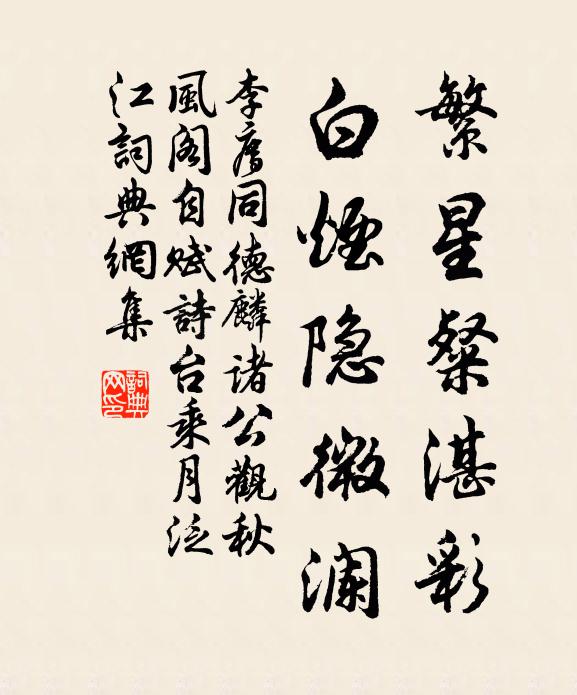 繁星粲湛彩
白煙隐微澜
李廌同德麟諸公觀秋
風阁自赋詩台乘月泛
江詞典網集
詞典网印